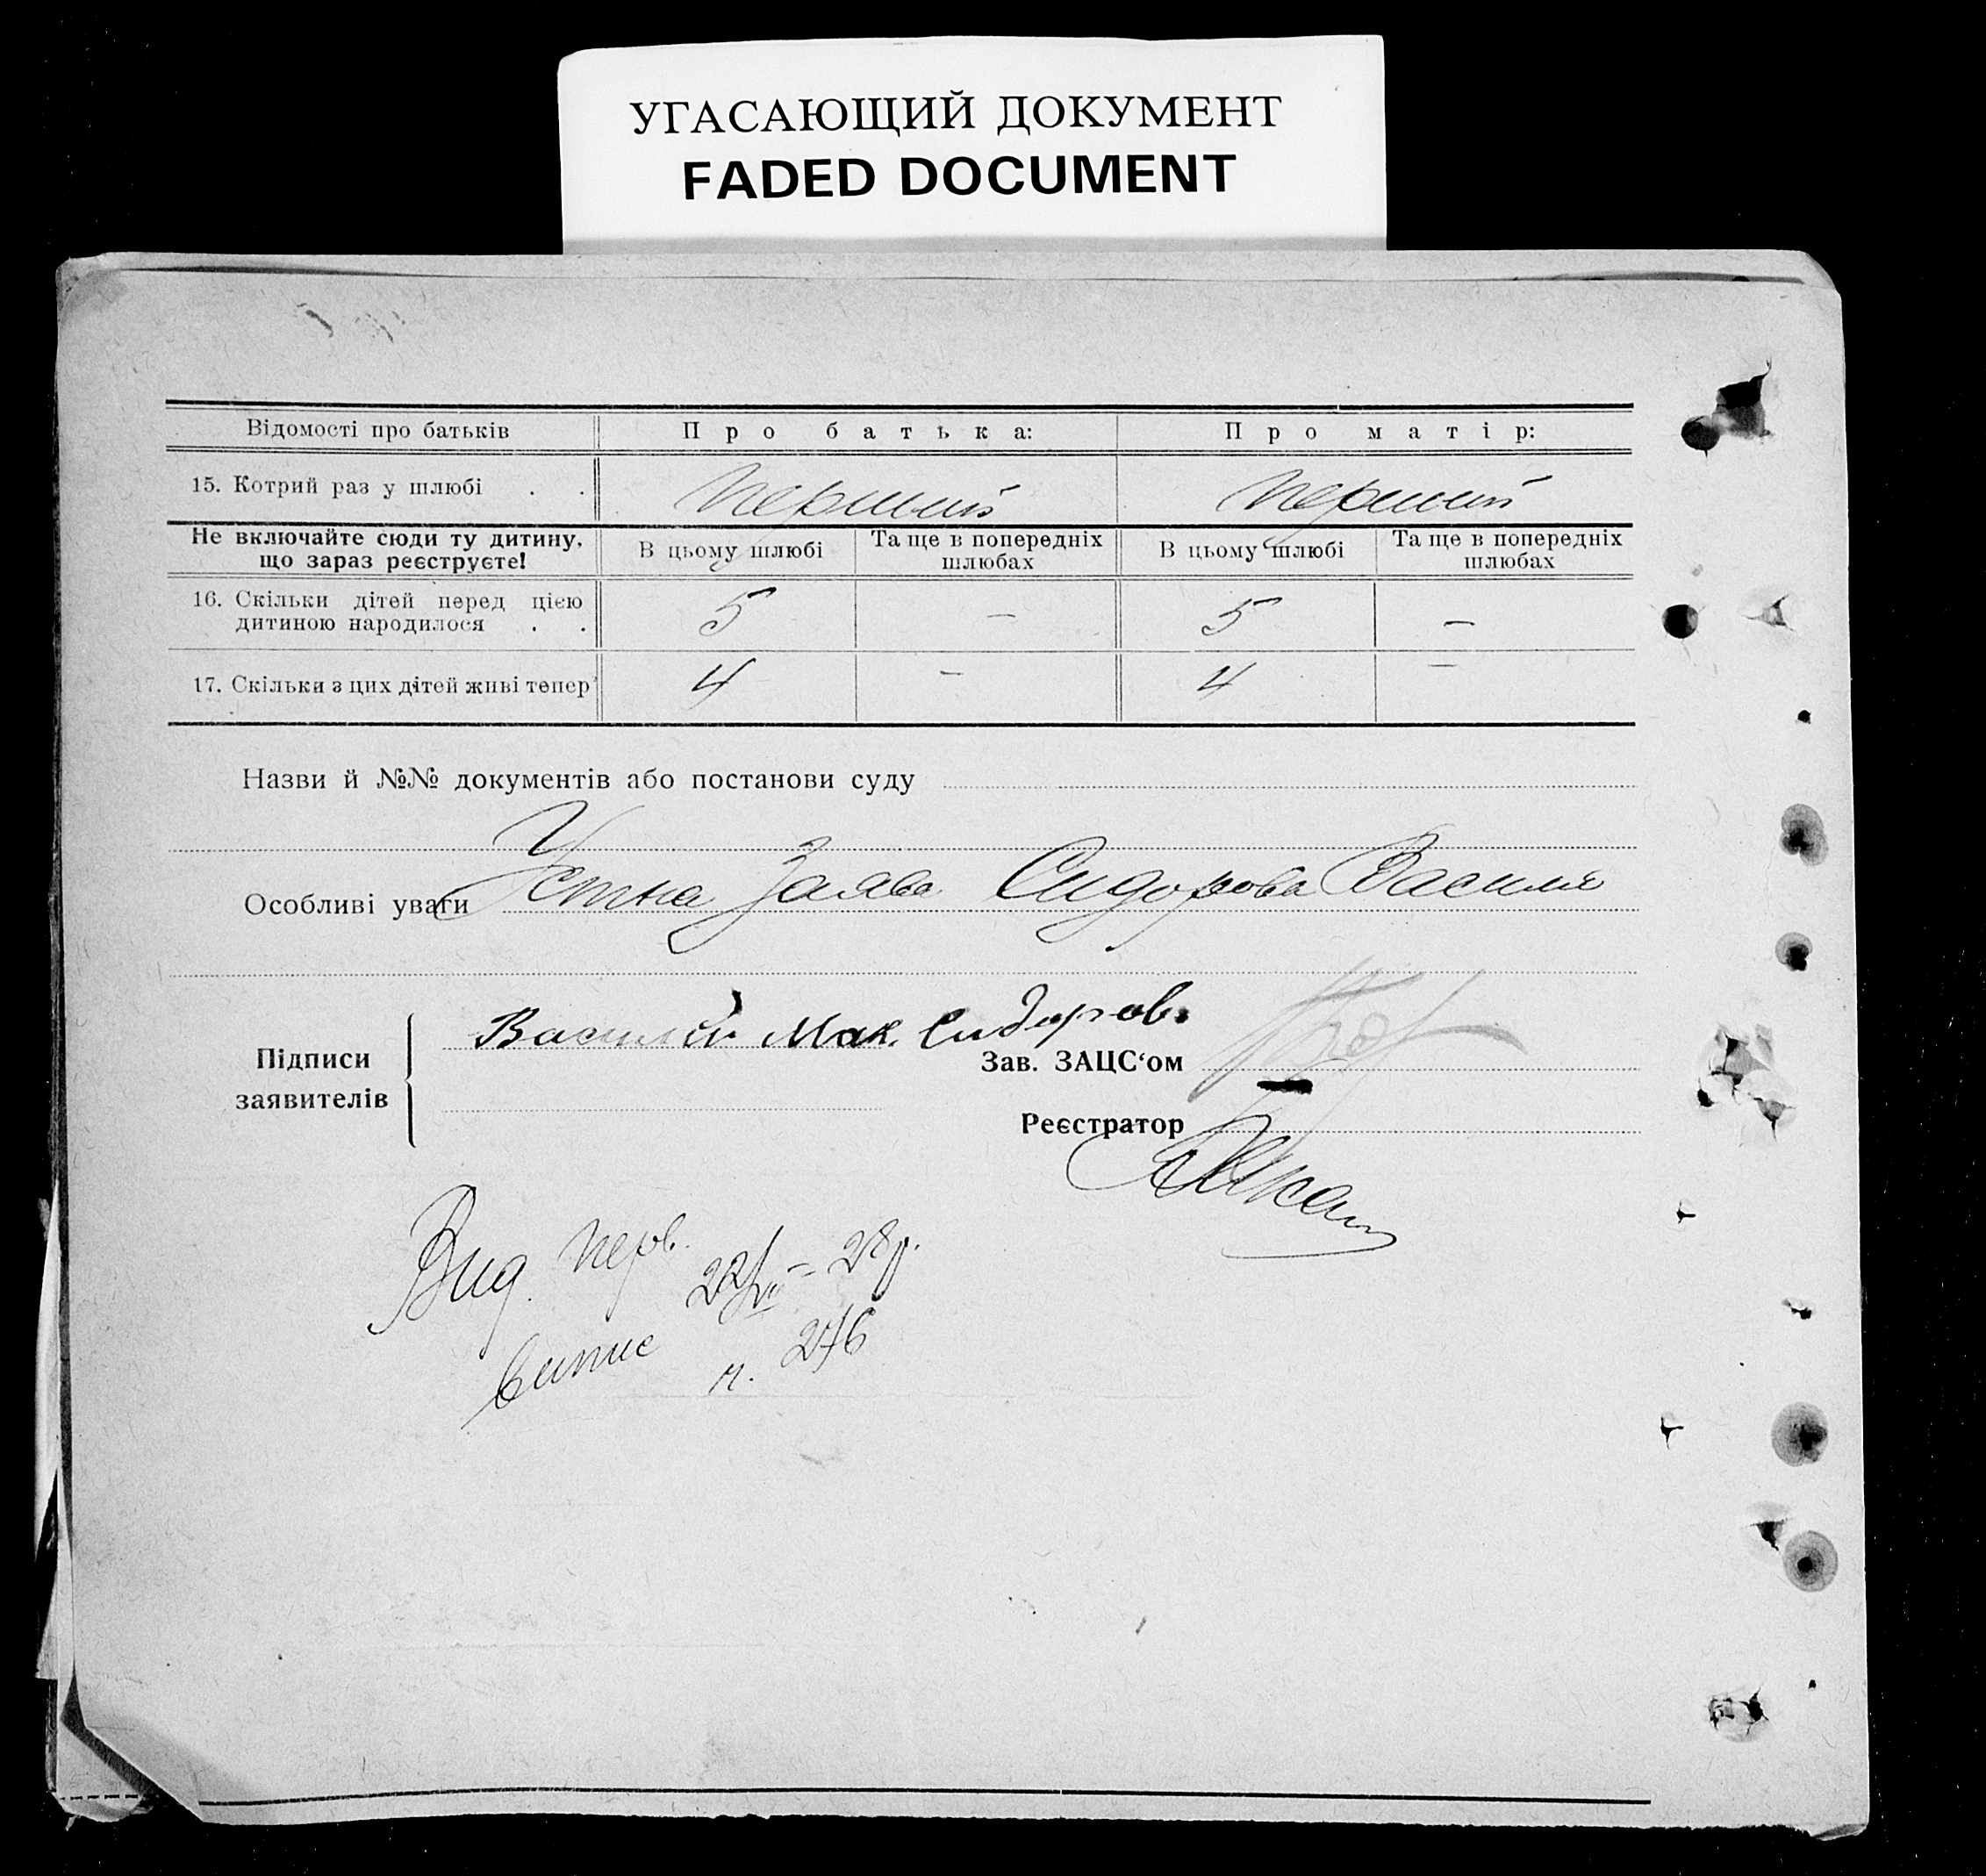 УГАСАЮЩИЙ ДОКУМЕНТ
FADED DOCUMENT
Відомості про батьків Про батька: Про матір:
15. Котрий раз у шлюбі . . перший перший
Не включайте сюди ту дитину, що зараз реєструєте! В цьому шлюбі Та ще в попередніх шлюбах В цьому шлюбі Та ще в попередніх шлюбах
16. Скільки дітей перед цією дитиною народилося . . 5 — 5 —
17. Скільки з цих дітей живі тепер 4 — 4 —
Назви й №№ документів або постанови суду
Особливі уваги Устна Заява Сидорова Василя
Підписи заявителів
Василий Мак. Сидоров.
Зав. ЗАЦС‘ом
Реєстратор
Вид. перв. 22/VI - 28р.
випис ч. 276